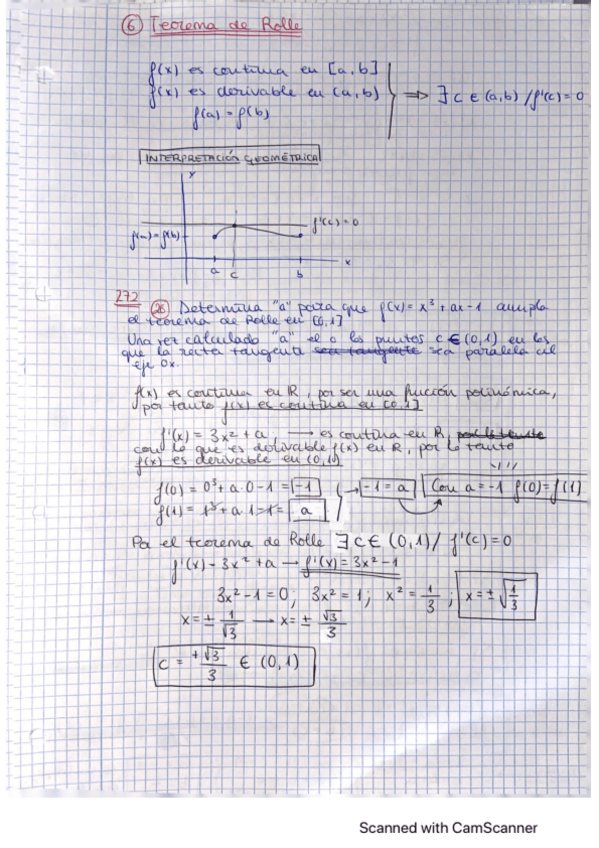 6 Teorema de Rolle
f(x) es continua en [a, b]
f(x) es derivable en (a, b) ⟹ ∃ c ∈ (a, b) / f'(c) = 0
f(a) = f(b)
INTERPRETACIÓN GEOMÉTRICA
y
f'(c) = 0
f(a) = f(b)
x
a c b
272
28 Determina "a" para que f(x) = x³ + ax - 1 cumpla
el teorema de Rolle en [0,1]
Una vez calculado "a" el o los puntos c ∈ (0,1) en los
que la recta tangente sea tangente sea paralela al
eje Ox.
f(x) es continua en R, por ser una función polinómica,
por tanto f(x) es continua en [0,1]
f'(x) = 3x² + a → es continua en R, por lo tanto
con lo que es derivable f(x) en R, por lo tanto
f(x) es derivable en (0,1)
f(0) = 0³ + a·0 - 1 = -1 → -1 = a Con a = -1 f(0) = f(1)
f(1) = 1³ + a·1 - 1 = a
Por el teorema de Rolle ∃ c ∈ (0,1) / f'(c) = 0
f'(x) = 3x² + a → f'(x) = 3x² - 1
3x² - 1 = 0; 3x² = 1; x² = 1/3; x = ± √(1/3)
x = ± 1/√3 → x = ± √3/3
c = +√3/3 ∈ (0,1)
Scanned with CamScanner